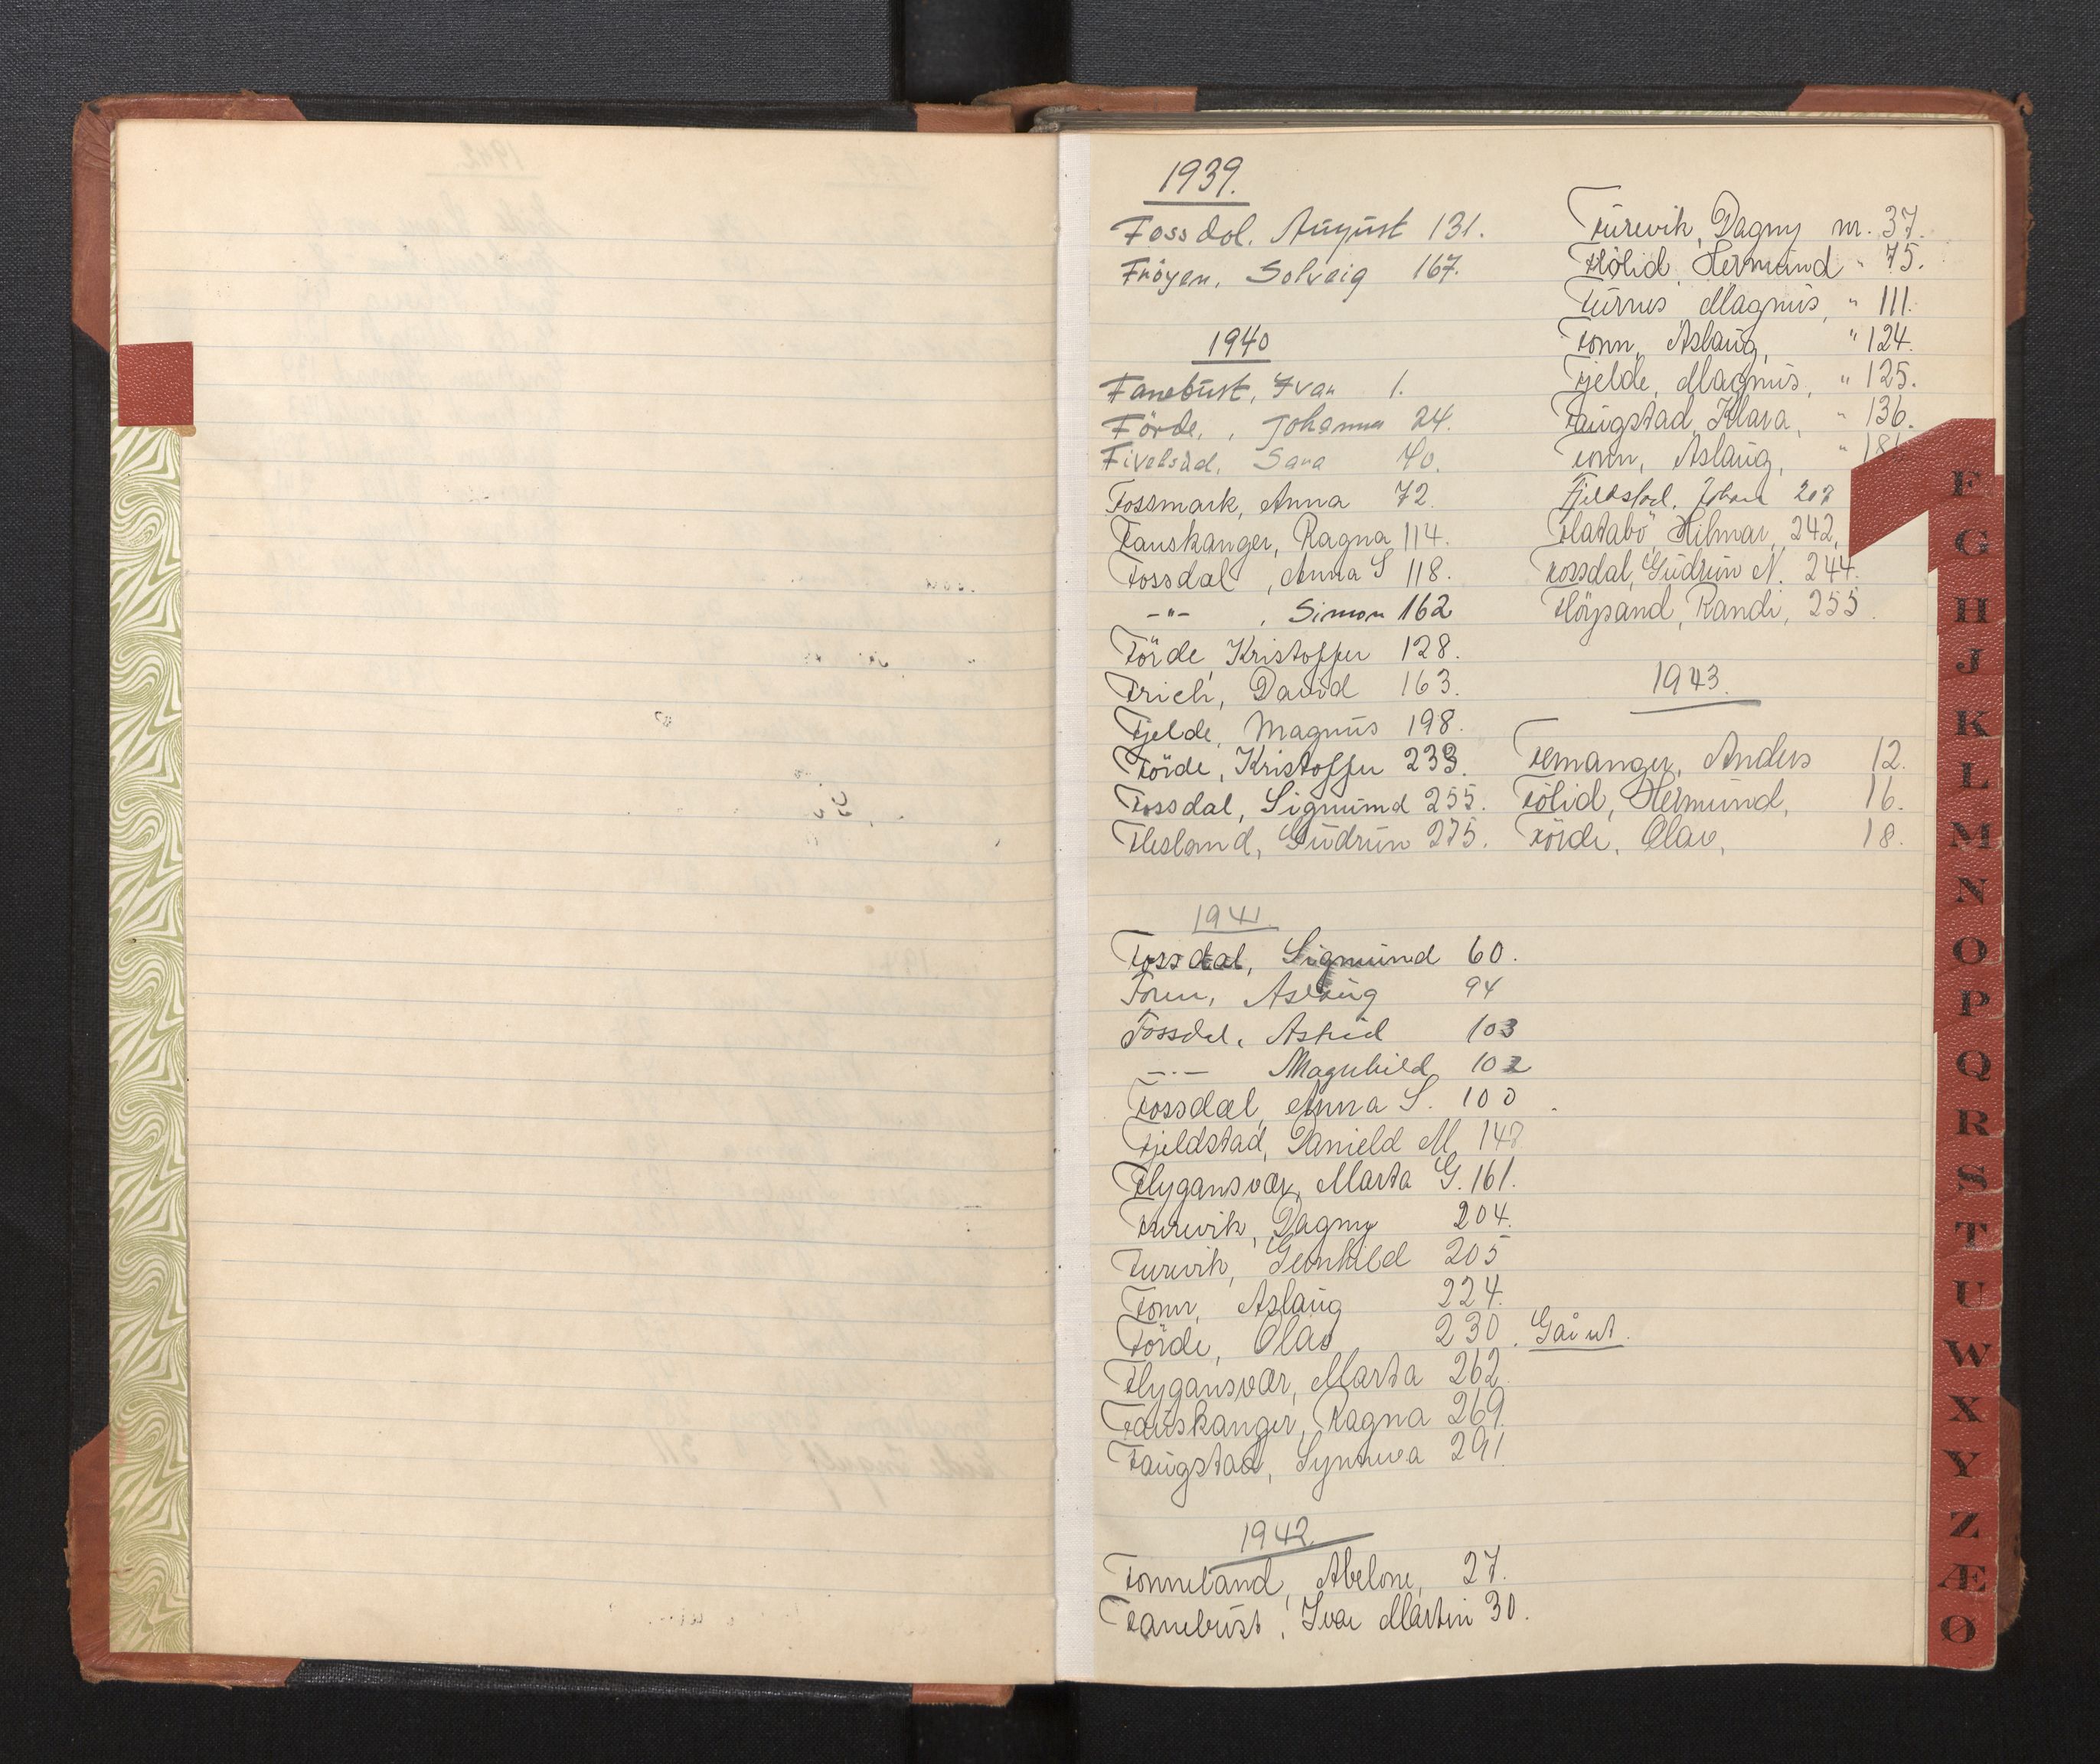 1939.
Fossdal, August 131.
Fröyen, Solveig 167.
1940
Fanebust, Ivar 1.
Förde, , Johanna 24.
Fivelsdal, Sara 40.
Fossmark, Anna 72.
Fauskanger, Ragna 114.
Fossdal, Anna S 118.
-"- , Simon 162
Förde, Kristoffer 128.
Frich, David 163.
Fjelde, Magnus 198.
Förde, Kristoffer 239.
Fossdal, Sigmund 255.
Flesland, Gudrun 275.
1941
Fossdal, Sigmund 60.
Fonn, Aslaug 94
Fossdal, Astrid 103
-"- Magnhild 102
Fossdal, Anna S. 100
Fjeldstad, Danield M. 148
Flygansvær, Marta G. 161.
Furevik, Dagny 204.
Furevik, Gunhild 205
Fonn, Aslaug 224.
Förde, Olav 230. Gått ut.
Flygansvær, Marta 262.
Fauskanger, Ragna 269.
Faugstad, Synneva 291.
1942
Fonneland, Abelone, 27.
Fanebust, Ivar Martin 30.
Furevik, Dagny nr. 37.
Flölid, Hermund " 75.
Furnes Magnus, " 111.
Fonn, Aslaug, " 124.
Fjelde, Magnus, " 125.
Faugstad, Klara, " 136.
Fonn, Aslaug, "
Fjeldstad, Johan 207
Flatabö Hilmar, 242,
Fossdal, Gudrun N. 244.
Flöysand, Randi, 255.
1943.
Femanger, Anders 12.
Fölid, Hermund, 16.
Förde, Olav, 18.
F
G
H
J
K
L
M
N
O
P
Q
R
S
T
U
W
X
Y
Z
Æ
Ø